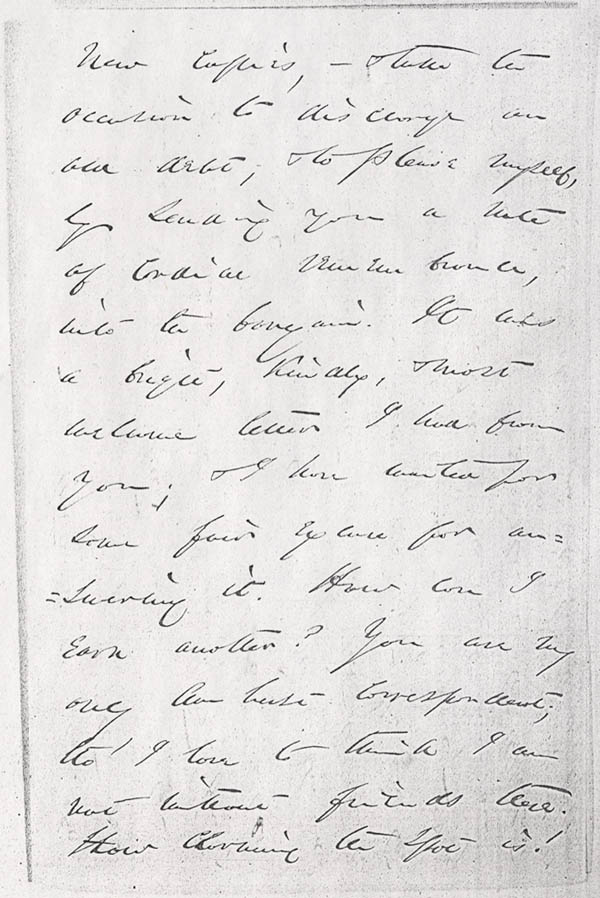 New Copies, — & take the
occasion to discharge an
old debt, & to please myself,
by sending you a note
of cordial remembrance,
into the bargain. It was
a bright, kindly, & most
welcome letter I had from
you; & I have wanted for
some fair excuse for an=
=swering it. How can I
earn another? You are my
only Amherst Correspondent;
tho' I love to think I am
not without friends there.
How charming the spot is!